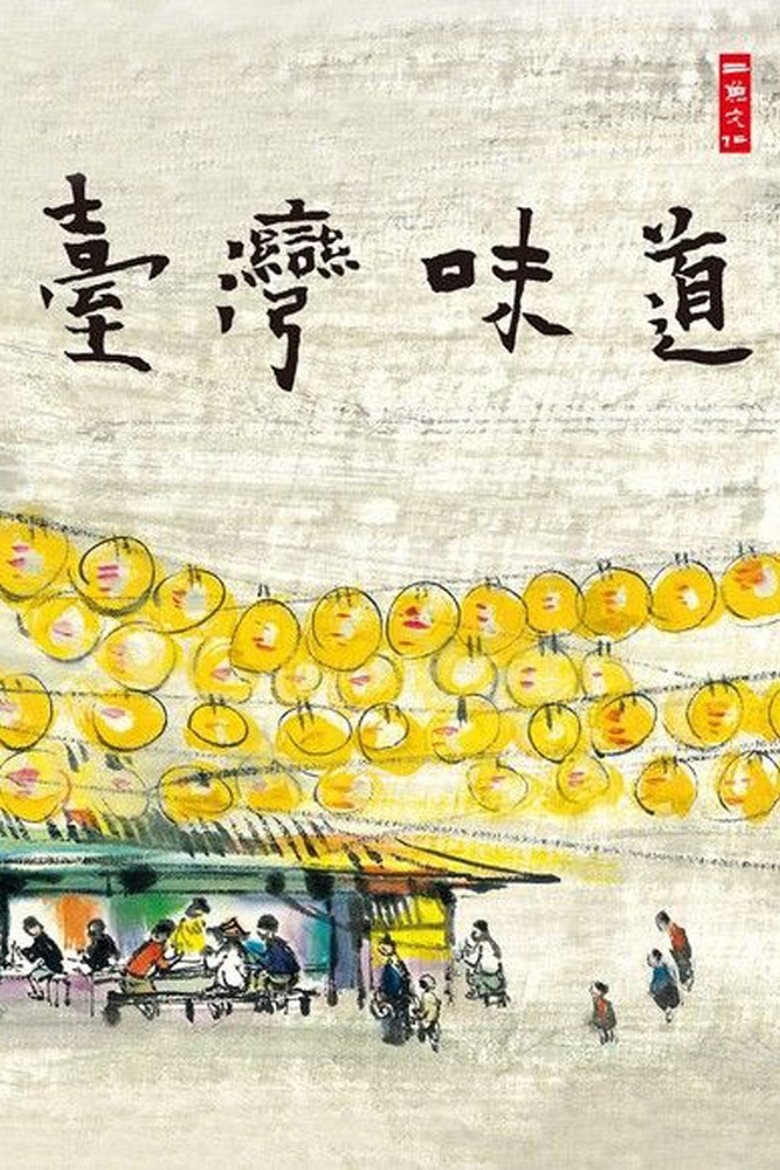 二魚文化
臺灣味道